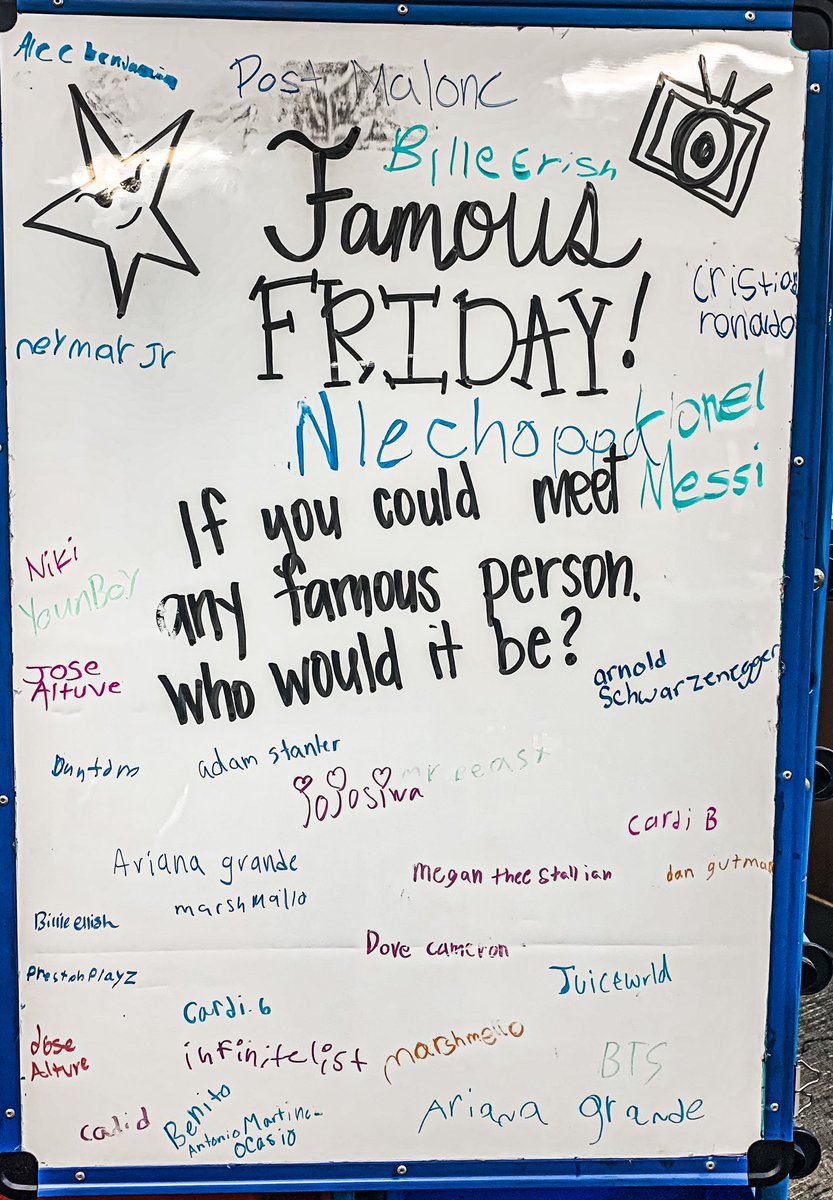 Alec benjamin
Post Malone
Bille Erish
Famous
FRIDAY!
cristiano
ronaldo
neymar Jr
Nlechoppa
Lionel
Messi
If you could meet
any famous person.
who would it be?
Niki
YounBoy
Jose
Altuve
arnold
Schwarzenegger
adam stanler
mr beast
jojosiwa
cardi B
Ariana grande
megan thee stallian
dan gutman
marshmallo
Billie ellish
Dove cameron
PrestonPlayz
Juicewrld
Cardi. b
Jose
Alture
infinitelist
marshmello
BTS
calid
Benito
Antonio Martinez
Ocasio
Ariana grande